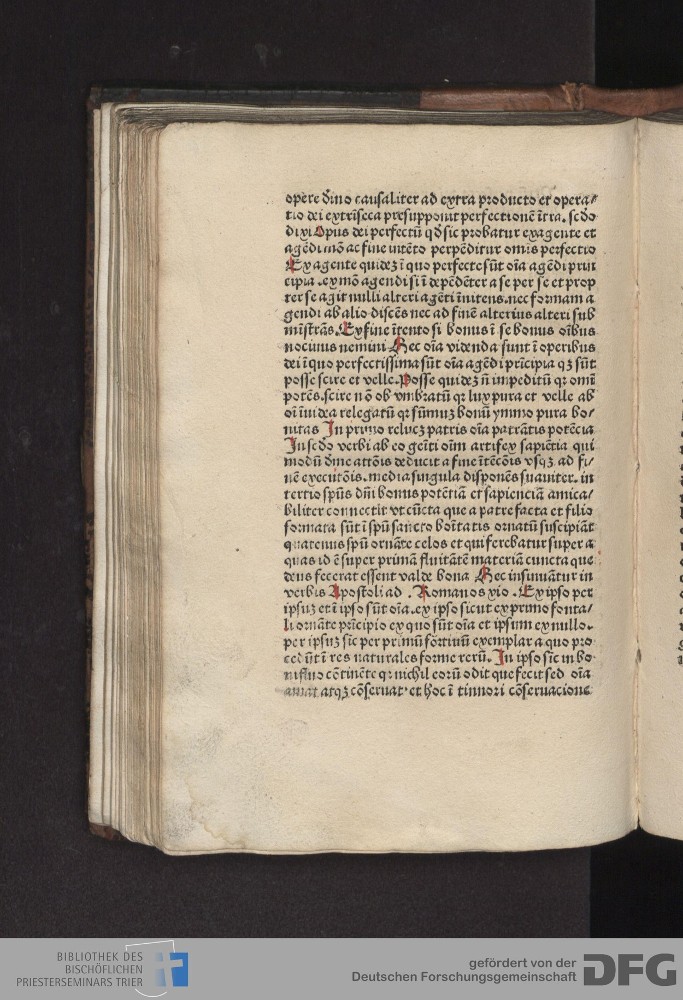 opere diuo causaliter ad extra producto et opera⸗
tio dei extrĩseca presupponit perfectionẽ ĩtra. scdo
dixi Opus dei perfectũ qd sic probatur ex agente et
agẽdi mõ ac fine intẽto perpẽditur omĩs perfectio
Ex agente quidez ĩ quo perfecte sũt oĩa agẽdi prin
cipia .ex mõ agendi si ĩdepẽdẽter a se per se et prop
ter se agit nulli alteri agẽti ĩnitens. nec formam a
gendi ab alio discẽs nec ad finẽ alterius alteri sub
mĩstrãs. Ex fine ĩtento si bonus ĩ se bonus oĩbus
nociuus nemini Hec oĩa videnda sunt ĩ operibus
dei ĩ quo perfectissima sũt oĩa agẽdi prĩcipia q̃ sũt
posse scire et velle. Posse quidez ñ impeditũ qr omĩ
potẽs. scire nõ obvmbratũ qr lux pura et velle ab
oĩ ĩuidea relegatũ qr sũmuz bonũ ymmo pura bo⸗
nitas In primo relucz patris oĩa patrãtis potẽcia
In scdo verbi ab eo geĩti oĩm artifex sapiẽtia qui
modũ dine actõis deducit a fine ĩtẽcõis vsqz ad fi⸗
nẽ executõis. media singula disponẽs suauiter. in
tertio spũs dñi bonus potẽtiã et sapienciã amica⸗
biliter connectit vt cũcta que a patre facta et filio
formata sũt ĩ spũ sancto boĩtatis ornatũ suscipiãt
quatenus spũ ornãte celos et qui ferebatur super a
quas id ẽ super primã fluitãtẽ materiã cuncta que
deus fecerat essent valde bona Hec insinuãtur in
verbis Apostoli ad . Romanos xio . Ex ipso per
ipsuz et ĩ ipso sũt oĩa. ex ipso sicut ex primo fonta⸗
li ornãte prĩcipio ex quo sũt oĩa et ipsum ex nullo.
per ipsuz sic per primũ fõrtiuũ exemplar a quo pro
cedũt ĩ res naturales forme rerũ. In ipso sic in bo
nifluo cõtinẽte qr nichil eorũ odit que fecit sed oĩa
amat atqz cõseruat et hoc ĩ tinnori cõseruacione
BIBLIOTHEK DES
BISCHÖFLICHEN
PRIESTERSEMINARS TRIER
gefördert von der
Deutschen Forschungsgemeinschaft DFG